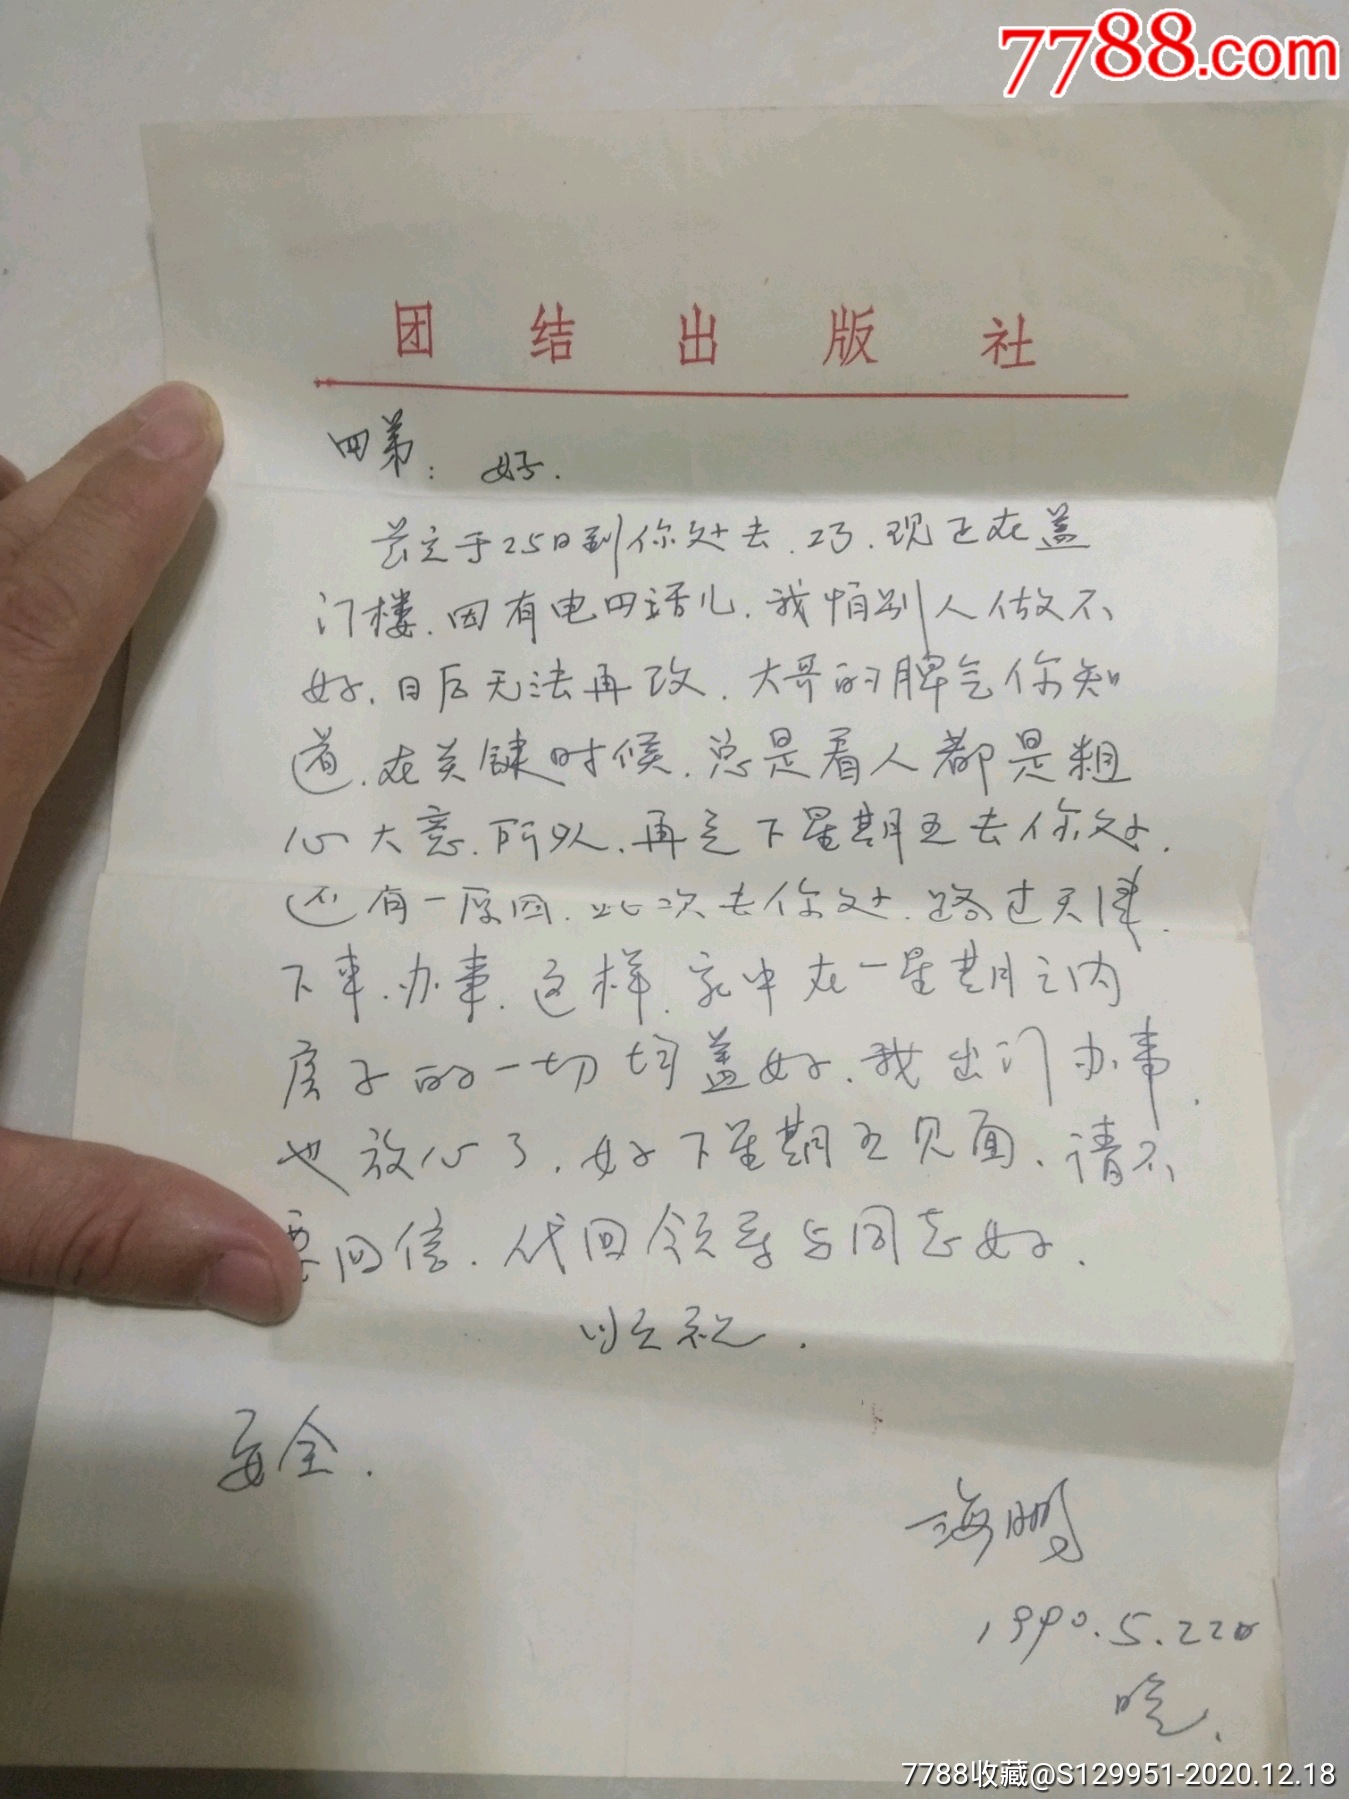 7788.com
团结出版社
四弟：好.
定于25日到你处去.巧.现正在盖
门楼.因有电四活儿.我怕别人做不
好.日后无法再改.大哥的脾气你知
道.在关键时候.总是看人都是粗
心大意.所以.再定下星期五去你处.
还有一原因.此次去你处.路过天津.
下车.办事.这样.家中在一星期之内
房子的一切均盖好.我出门办事.
也放心了.好下星期五见面.请不
要回信.代回领导与同志好.
顺祝.
安全.
海鹏
1990.5.22日
晚.
7788收藏@S129951-2020.12.18